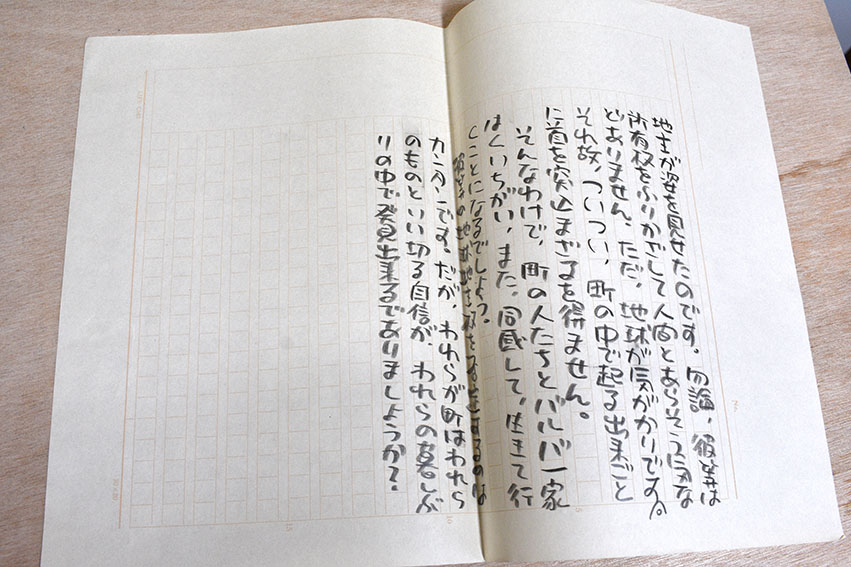 地主が姿を見せたのです。勿論、彼等は
所有权をふりかざして人間とあらそう気な
どありません。ただ、地球が気がかりです。
それ故、ついつい、町の中で起る出来ごと
に首を突込まざるを得ません。
そんなわけで、町の人たちとバルバ一家
はくいちがい、また、同感して、生きて行
くことになるでしょう。
彼等の地球地主权を するのは
カンタンです。だが、われらが町はわれら
のものといい切る自信が、われらの暮しぶ
りの中で発見出来るでありましょうか?